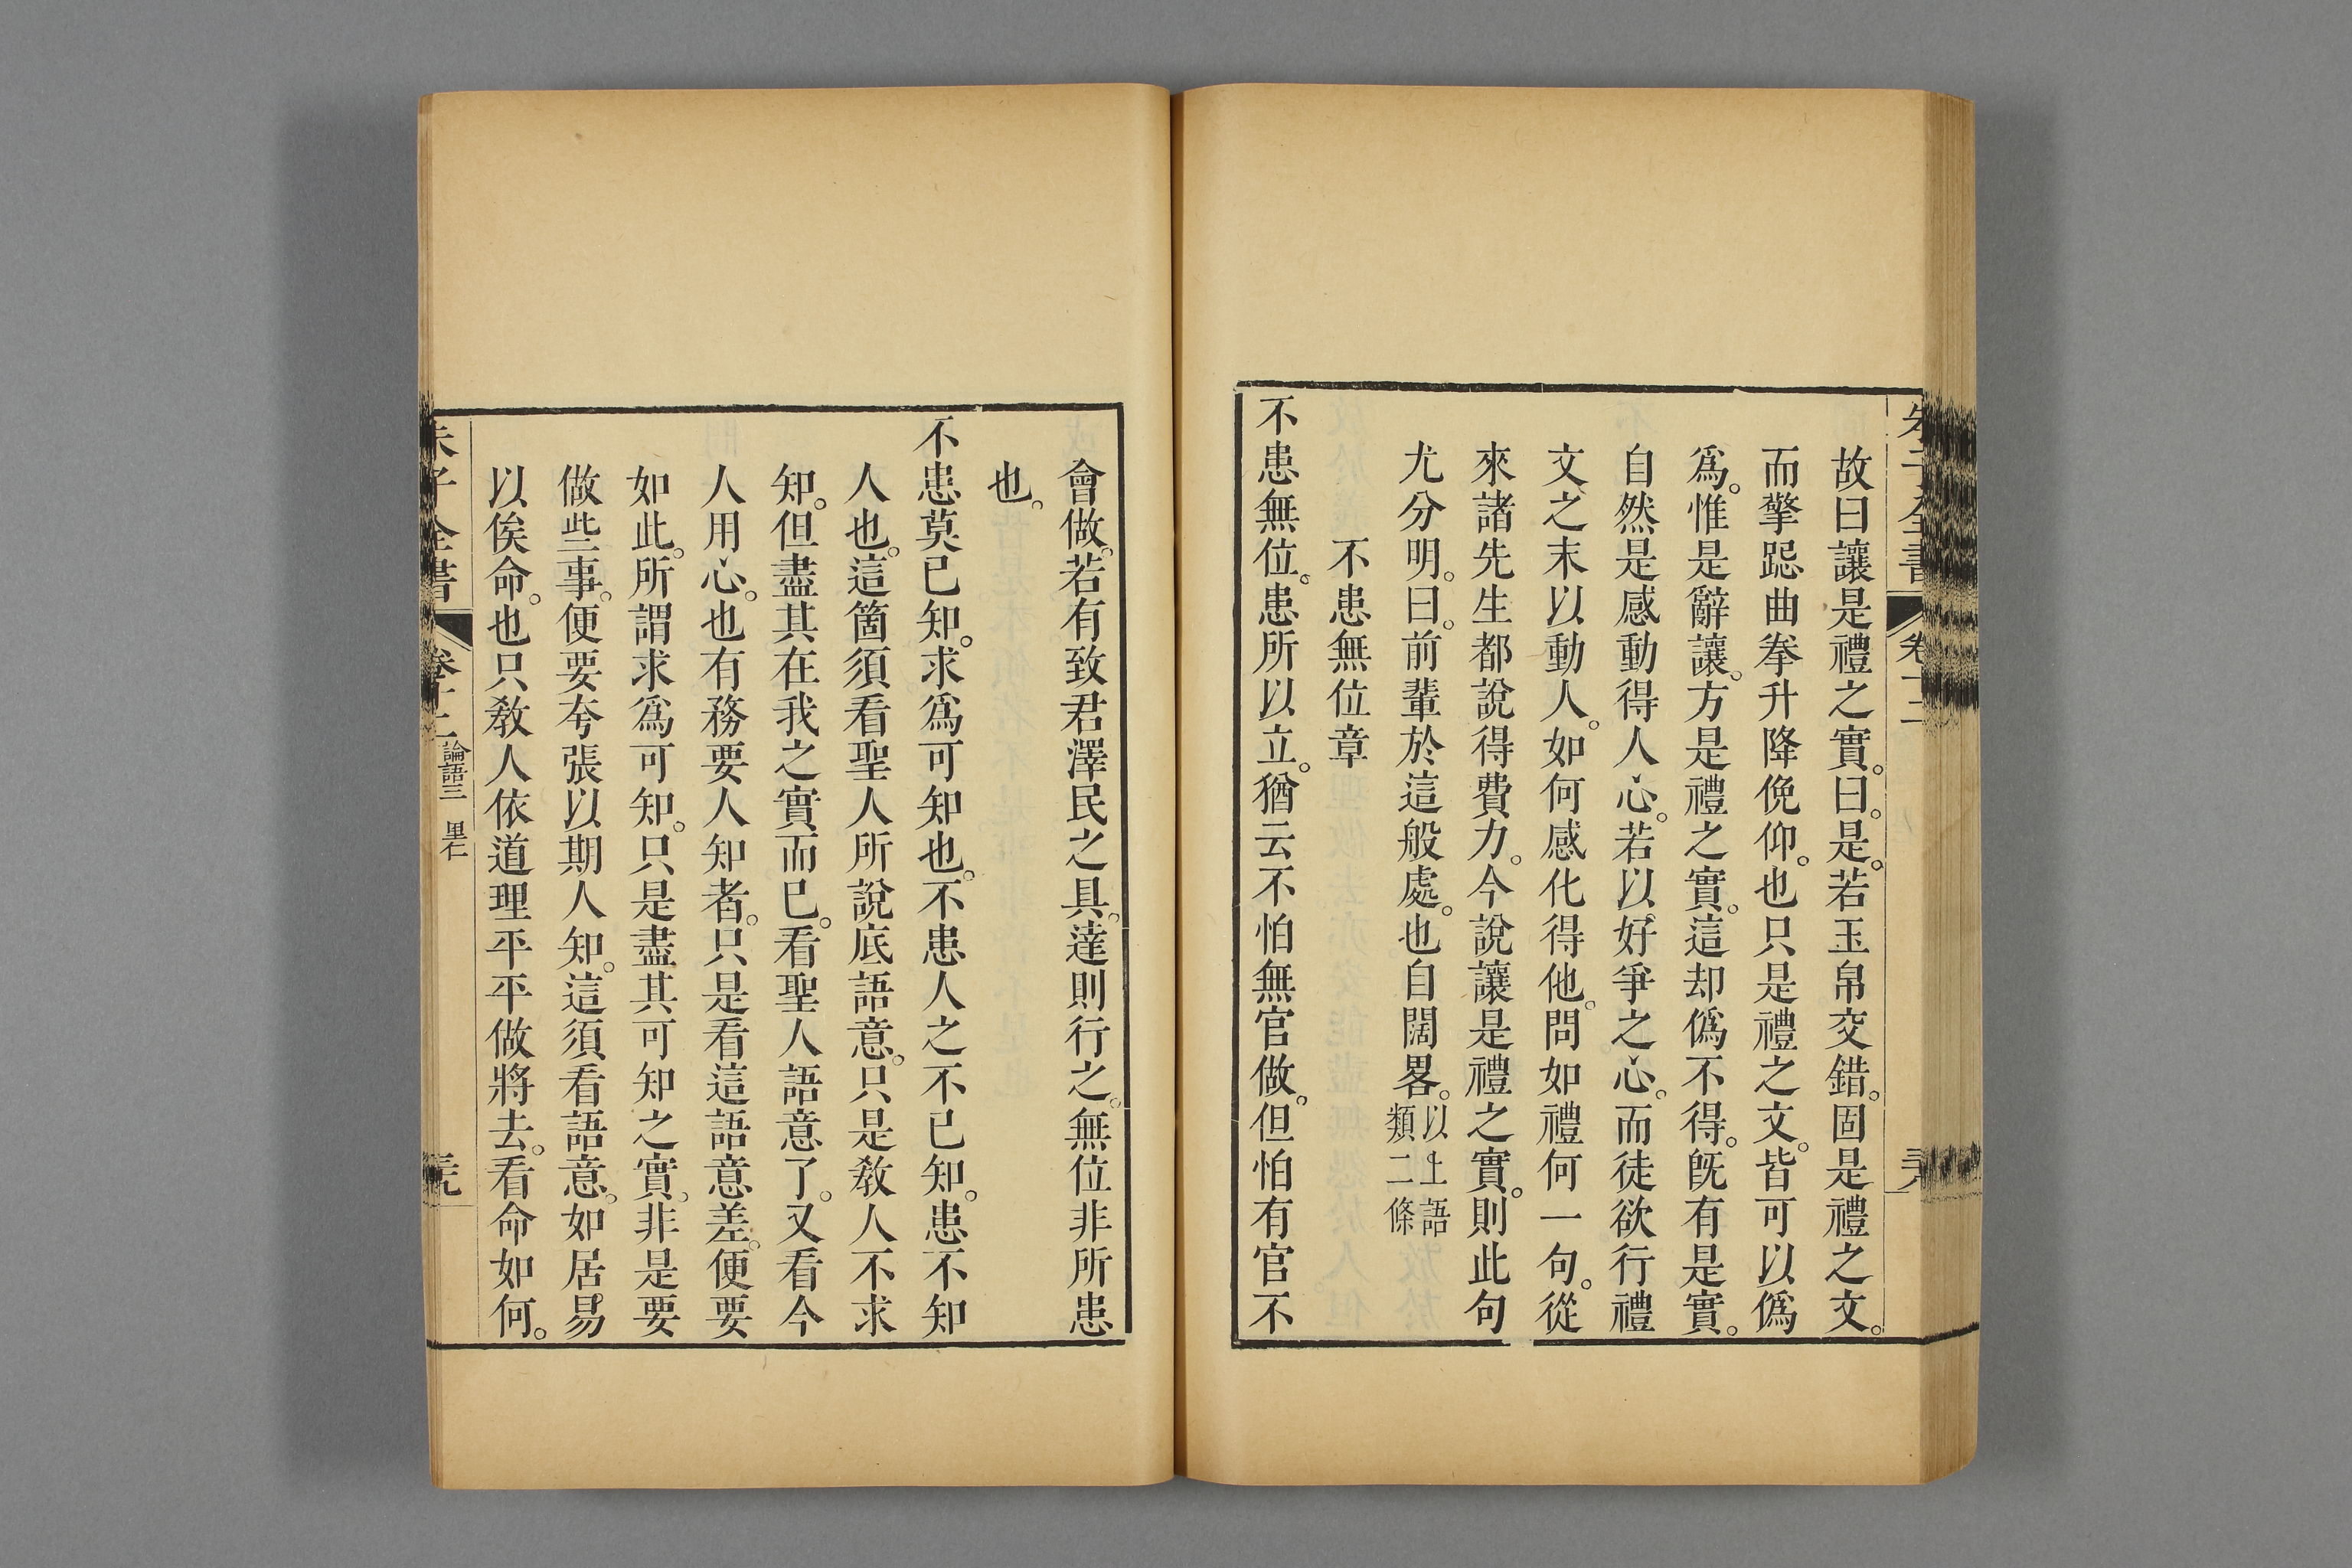 故曰讓是禮之實。曰。是。若玉帛交錯。固是禮之文。
而擎跽曲拳升降俛仰。也只是禮之文。皆可以僞
爲。惟是辭讓。方是禮之實。這却僞不得。旣有是實。
自然是感動得人心。若以好爭之心。而徒欲行禮
文之末以動人。如何感化得他。問如禮何一句。從
來諸先生都說得費力。今說讓是禮之實。則此句
尤分明。曰。前輩於這般處。也自闊畧。以上語
類二條
不患無位章
不患無位。患所以立。猶云不怕無官做。但怕有官不
會做。若有致君澤民之具。達則行之。無位非所患
也。
不患莫已知。求爲可知也。不患人之不已知。患不知
人也。這箇須看聖人所說底語意。只是敎人不求
知。但盡其在我之實而已。看聖人語意了。又看今
人用心。也有務要人知者。只是看這語意差。便要
如此。所謂求爲可知。只是盡其可知之實。非是要
做些事。便要夸張以期人知。這須看語意。如居易
以俟命。也只敎人依道理平平做將去。看命如何。
朱子全書 卷十二 論語三 里仁